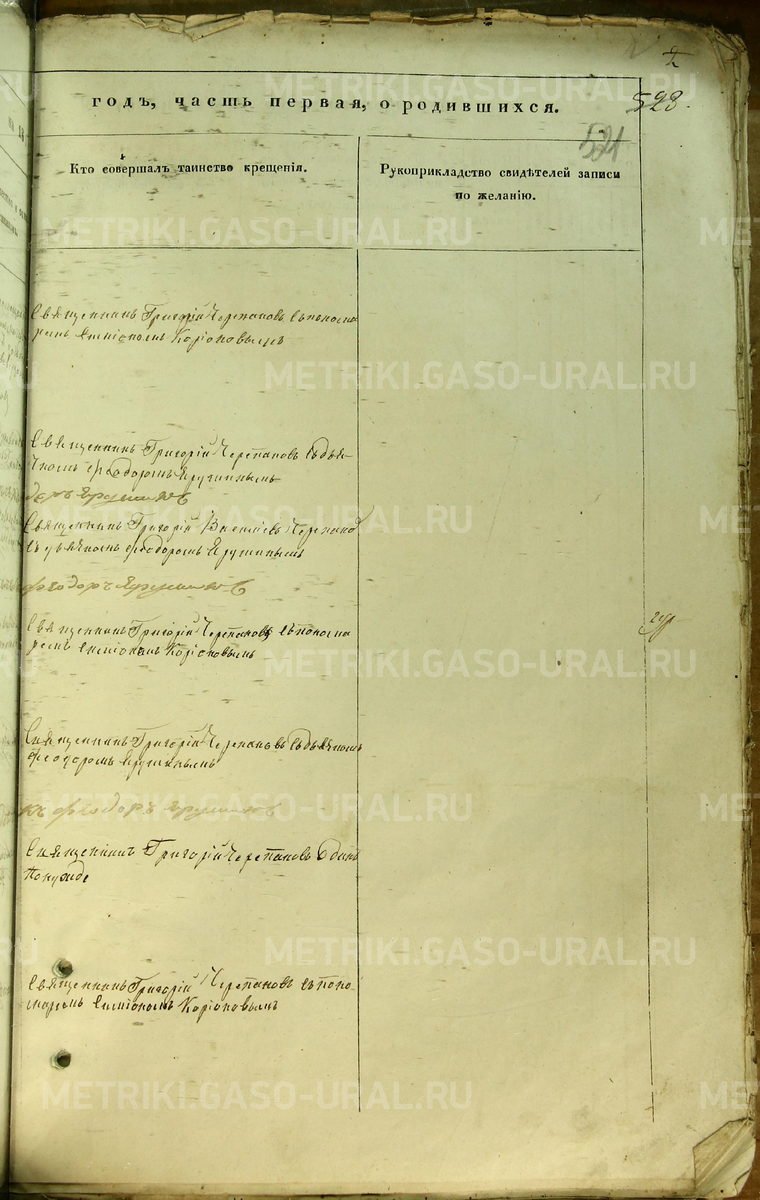 годъ, часть первая, о родившихся.
528.
521
Кто совершалъ таинство крещенія.
Рукоприкладство свидѣтелей записи
по желанію.
Священникъ Григорій Черепановъ съ понома
ремъ Симіономъ Каріоновымъ
Священникъ Григорій Черепановъ съ дья
чкомъ Феодоромъ Ярушинымъ
Священникъ Григорій Василіевъ Черепанов
съ дьячкомъ Феодоромъ Ярушинымъ
Феодоръ Ярушинъ
Священникъ Григорій Черепановъ съ понома
ремъ Симіономъ Каріоновымъ
Священникъ Григорій Черепановъ съ дьячкомъ
Феодоромъ Ярушинымъ
къ Феодоръ Ярушинъ
Священникъ Григорій Черепановъ Одинъ
понужде
Священникъ Григорій Черепановъ съ поно
маремъ Симіономъ Каріоновымъ
METRIKI.GASO-URAL.RU